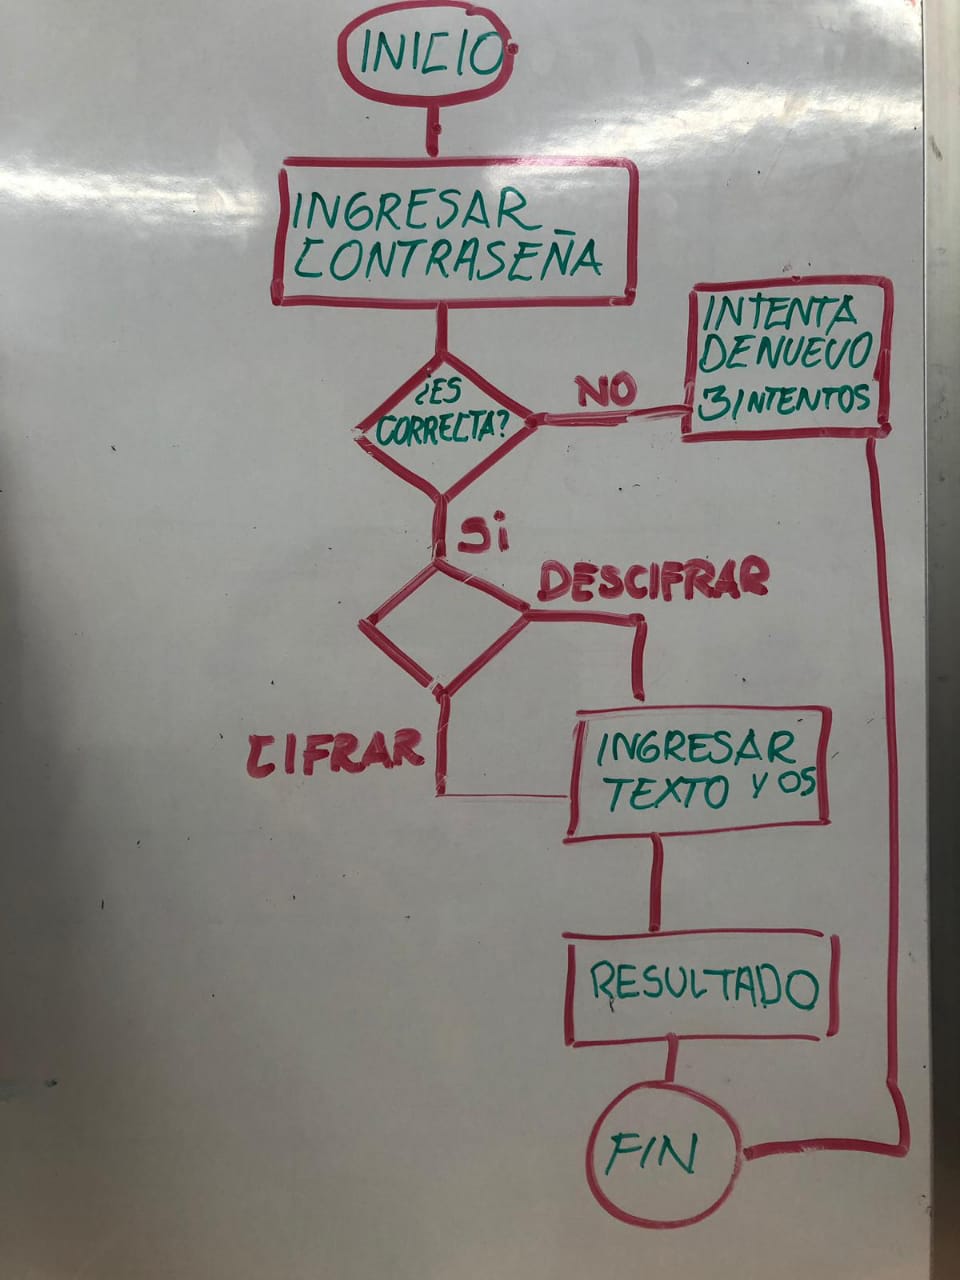 INICIO
INGRESAR
CONTRASEÑA
¿ES
CORRECTA?
NO
INTENTA
DE NUEVO
3 INTENTOS
Si
DESCIFRAR
CIFRAR
INGRESAR
TEXTO Y OS
RESULTADO
FIN